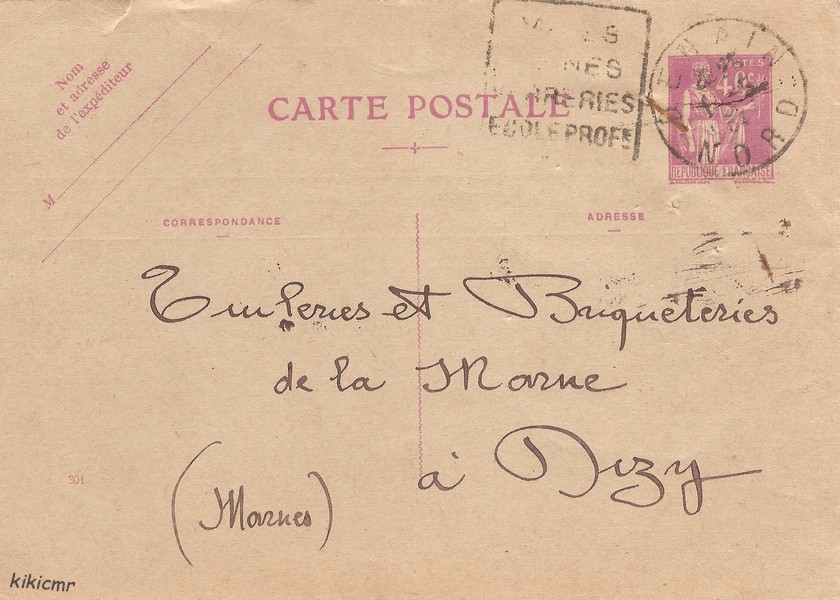 Nom
et adresse
de l'expéditeur
M
CARTE POSTALE
ECOLE PROFE
DENAIN
NORD
POSTES
40c
REPUBLIQUE FRANÇAISE
CORRESPONDANCE
ADRESSE
Tuileries et Briqueteries
de la Marne
à Dizy
(Marnes)
301
kikicmr